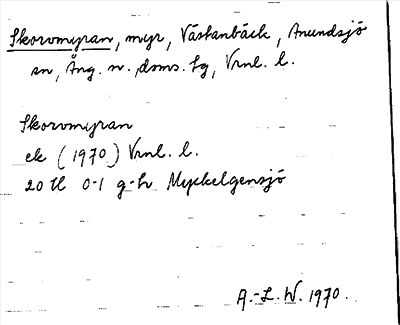 Skorvmyran, myr, Västanbäck, Anundsjö
sn, Ång. n. doms. hg, Vrnl. l.
Skorvmyran
ek (1970) Vrnl. l.
20 H 0-1 g-h Myckelgensjö
A.-L. W. 1970.